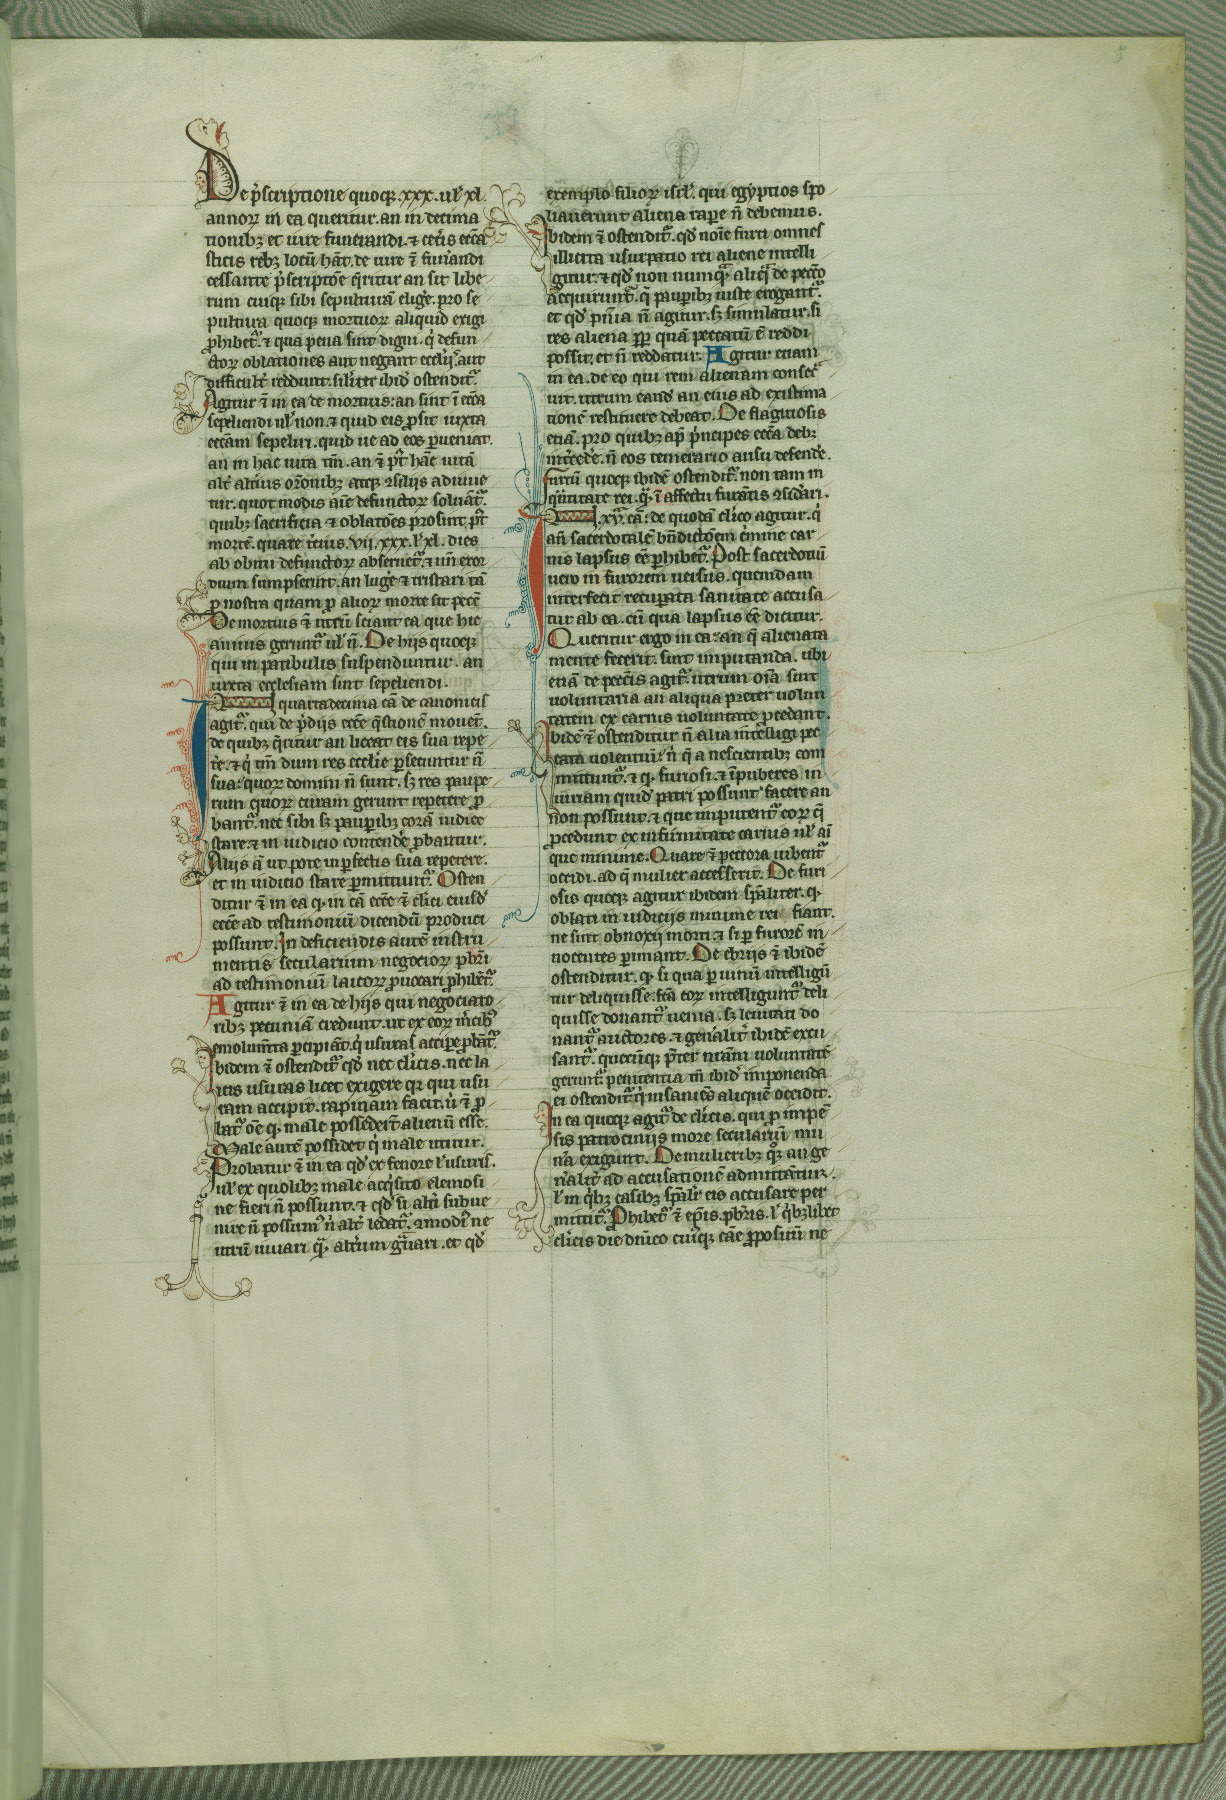 5
De p̃scriptione quoqꝫ .xxx. ul̃ xl.
annoꝝ in ea queritur. an in decima
tionibꝫ et iure funerandi. ⁊ cet̃is ecc̃a
sticis rebꝫ locũ hãt. de iure ⁊̃ fun̾andi
cessante p̃scriptõe q̃ritur an sit libe
rum cuiqꝫ sibi sepulturã elig̾e. pro se
pultura quoqꝫ mortuoꝝ aliquid exigi
ꝓhibet᷑. ⁊ qua pena sint digni. q̇ defun
ctoꝝ oblationes aut negant eccl̃ijs. aut
difficult̾ reddunt. sil̃iter ibid̾ ostendit᷑.
Agitur ⁊̃ in ea de mortuis. an sint ĩ ecc̃a
sepeliendi ul̃ non. ⁊ quid eis ꝓsit iuxta
ecc̃am sepeliri. quid ue ad eos ꝑueniat.
an in hac uita tm̃. an ⁊̃ p̾t hãc uitã
alt̾ alt̾ius or̃onibꝫ atqꝫ ꝯsilijs adiuue
tur. quot modis aĩe defunctoꝝ soluãt᷑.
quibꝫ sacrificia ⁊ oblatões prosint p̾t
mortẽ. quare t̾cius. vij. xxx. l̾ xl. dies
ab obitu defunctoꝝ obseruet᷑. ⁊ un̾ exor
dium sumpserũt. an lug̾e ⁊ tristari tã
ꝓ nostra quam ꝓ alioꝝ morte sit pecc̃
De mortuis ⁊̃ utrũ sciant ea que hic
a uiuis gerunt᷑ ul̾ ñ. De hijs quoqꝫ
qui in patibulis suspenduntur. an
iuxta ecclesiam sint sepeliendi.
quartadecima cã de canonicis
agit᷑. qui de p̾dijs ecc̃e q̃stionẽ mouet᷑.
de quibꝫ q̃ritur an liceat eis sua repe
t̾e. ⁊ q̇ tm̃ dum res ecclie ꝑsecuntur ñ
sua: quoꝝ domini ñ sunt. sꝫ res paupe
rum quoꝝ curam gerunt repetere ꝓ
bant᷑. nec sibi sꝫ pauꝑibꝫ corã iudice
stare. ⁊ in iudicio contend̾e ꝓbantur.
Alijs ã ut pote inꝑfectis sua repetere.
et in iudicio stare ꝑmittunt᷑. Osten
ditur ⁊̃ in ea ꝙ in cã ecc̃e ⁊̃ cl̾ici eiusd̾
ecc̃e ad testimoniũ dicendũ produci
possunt. In deficiendis autẽ instru
mentis seculariuum negocioꝝ pb̾ri
ad testimoniũ laicoꝝ ꝓuocari ꝓhibet᷑.
Agitur ⁊̃ in ea de hijs qui negociato
ribꝫ pecuniã credunt. ut ex eoꝝ m̾cibꝫ
emolumẽta ꝑcipiãt. q̇ usuras accipe ꝓbãt᷑.
Ibidem ⁊̃ ostendit᷑ qd̾ nec cl̾icis. nec la
icis usuras licet exigere qꝛ qui usu
ram accipit. rapinam facit. ñ ⁊̃ ꝓ
bat᷑ oẽ ꝙ male possidet᷑ alienũ esse.
Male autẽ possidet q̇ male utitur.
Probatur ⁊̃ in ea qd̾ ex fenore l̾ usuris.
ul̾ ex quolibꝫ male acq̇sito elemosi
ne fieri ñ possunt. ⁊ qd̾ si alt̾i subue
nire ñ possum᷒ ñ alt̾ ledat᷑. ꝯmodi᷒ ne
utrũ iuuari q᷑ alt̾um g᷑uari. et qd̾
exemplo filioꝝ isrl̾. qui egyptios spo
liauerunt aliena raꝑe ñ debemus.
Ibidem ⁊̃ ostendit᷑. qd̾ noĩe furti omnes
illicita usurpatio rei aliene intelli
gitur. ⁊ qd̾ non numq̃ aliq̃ de pecc̃o
acquirunt᷑. q̃ pauꝑibꝫ iuste erogant᷑.
et qd̾ pñia ñ agitur. sꝫ simulatur. si
res aliena ꝓp̾ quã peccatũ ẽ reddi
possit. et ñ reddatur. Agitur etiam
in ea. de eo qui rem alienam consec᷑
uit. utrum eand̾ an eius ad existima
tionẽ restituere debeat. De flagitiosis
etiã. pro quibꝫ ap̾ p̾ncipes ecc̃a debꝫ
int̾ced̾e. ñ eos temerario ausu defend̾e.
furtũ quoqꝫ ibidẽ ostendit᷑. non tam in
q̃ntitate rei. q᷑ ĩ affectu furãtis ꝯsid̾ari.
.xv̾. cã. de quodã cl̾ico agitur. q̇
an̾ sacerdotalẽ bñdictõem c̾mine car
nis lapsus eẽ ꝑhibet᷑. Post sacerdotiũ
uero in furorem uersus. quemdam
interfecit recuꝑata sanitate accusa
tur ab ea. cũ qua lapsus eẽ dicitur.
Queritur ergo in ea: an q̃ alienata
mente fecerit. sint imputanda. ubi
etiã de pecc̃is agit᷑. utrum oĩa sint
uoluntaria an aliqua preter uolun
tatem ex carnis uoluntate procedant.
Ibidẽ ⁊̃ ostenditur ñ alia int̾elligi pec
cata uolentiũ: ñ q̃ a nescientibꝫ com
mittunt᷑. ⁊ ꝙ furiosi. ⁊ ĩpuberes in
iuriam quid̾ pati possunt. facere an
non possunt. ⁊ que imputent᷑ eoꝝ q̃
ꝓcedunt ex infirmitate carnis ul̾ aĩ
que minime. Quare ⁊̃ peccora iubent᷑
occidi. ad q̃ mulier accesserit. De furi
osis quoqꝫ agitur ibidem sp̃aliter. ꝙ
oblati in iudicijs minime rei fiant.
ne sint obnoxij morti. ⁊ si ꝑ furorẽ in
nocentes ꝑimant. De ebrijs ⁊̃ ibidẽ
ostenditur. ꝙ si qua ꝑ uinũ intelligũ
tur deliquisse. fc̃a eoꝝ intelligunt᷑ deli
quisse donant᷑ uenia. sꝫ leuitati do
nant᷑ auctores. ⁊ gen̾alit̾ ibidẽ excu
sant᷑. quecũqꝫ p̾ter nr̃am uoluntatẽ
gerunt᷑ penitentia tñ ibid̾ imponenda
ei ostendit᷑ q̇ insaniẽs aliquẽ occidit.
In ea quoqꝫ agit᷑ de cl̾icis. qui ꝓ impẽ
sis patrocinijs more seculariũ mu
n̾a exigunt. De mulieribꝫ q̊ꝫ an ge
n̾alit̾ ad accusationẽ admittãtur.
l̾ in q̇bꝫ casibꝫ sp̃alr̾ eis accusare per
mittit᷑. Phibet᷑ ⁊̃ ep̃is. pb̾ris. l̾ q̇bꝫlibet
cl̾icis die dñico cuiusqꝫ cãe ꝓpositũ ne